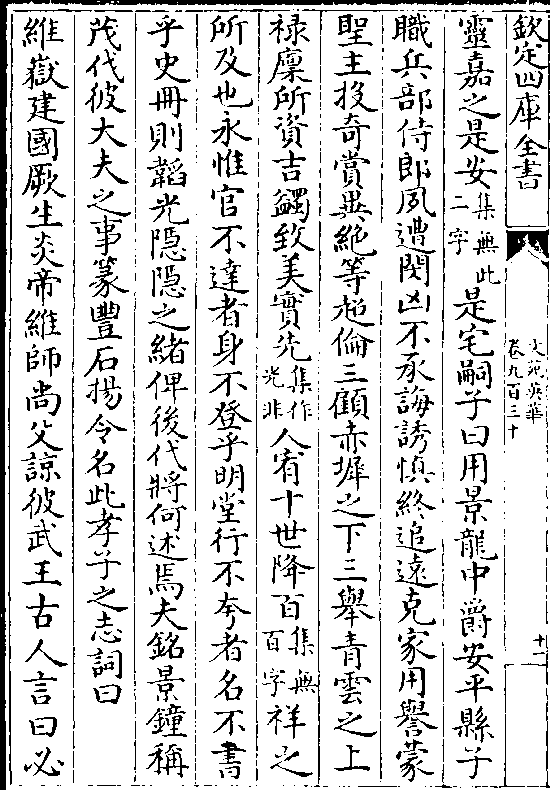 欽定四庫全書
文苑英華
卷九百三十
十二
靈嘉之是安集無此二字是宅嗣子曰用景龍中爵安平縣子
職兵部侍郎夙遭閔凶不承誨誘慎終追遠克家用譽蒙
聖主投奇賞異絶等超倫三顧赤墀之下三舉青雲之上
禄廩所資吉蠲致美實先集作光非人宥十世降百集無百字祥之
所及也永惟官不達者身不登乎明堂行不夸者名不書
乎史冊則韜光隠隠之緒俾後代將何述焉夫銘景鐘稱
茂代彼大夫之事篆豐石揚令名此孝子之志詞曰
維嶽建國厥生炎帝維師尚父諒彼武王古人言曰必